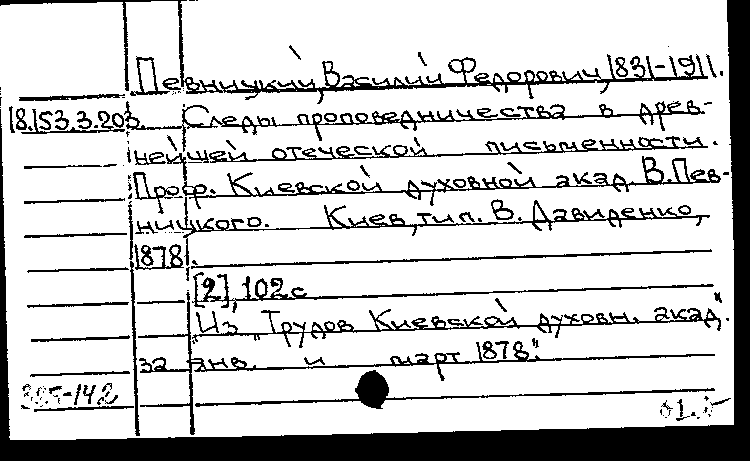 Певницкий, Василий Федорович, 1831-1911.
18.153.3.203 Следы проповедничества в древ-
нейшей отеческой письменности.
Проф. Киевской духовной акад. В. Пев-
ницкого. Киев, тип. В. Давиденко,
1878.
[2], 102 с
"Из "Трудов Киевской духовн. акад".
за янв. и март 1878".